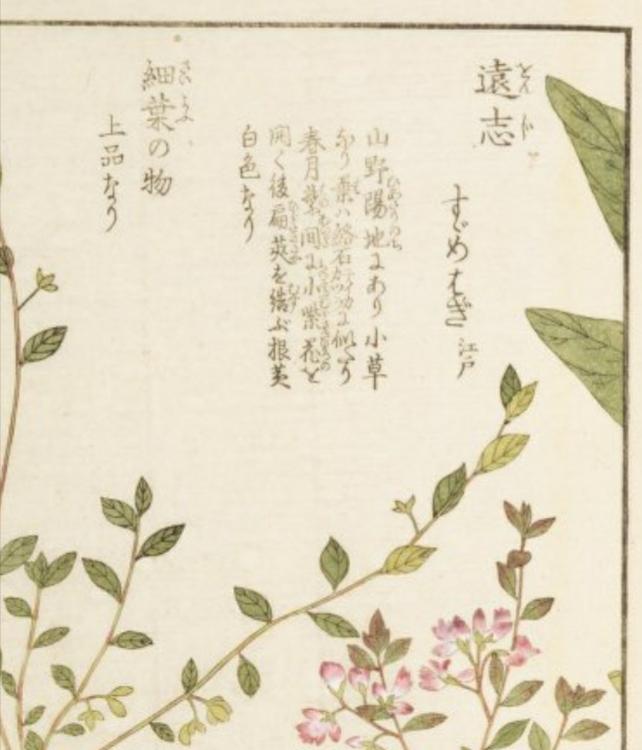 遠志
すゞめはぎ 江戸
山野陽地にあり小草
なり葉ハ絡石に似たり
春月葉間に小紫花を
開く後扁莢を結ぶ根黄
白色なり
細葉の物
上品なり